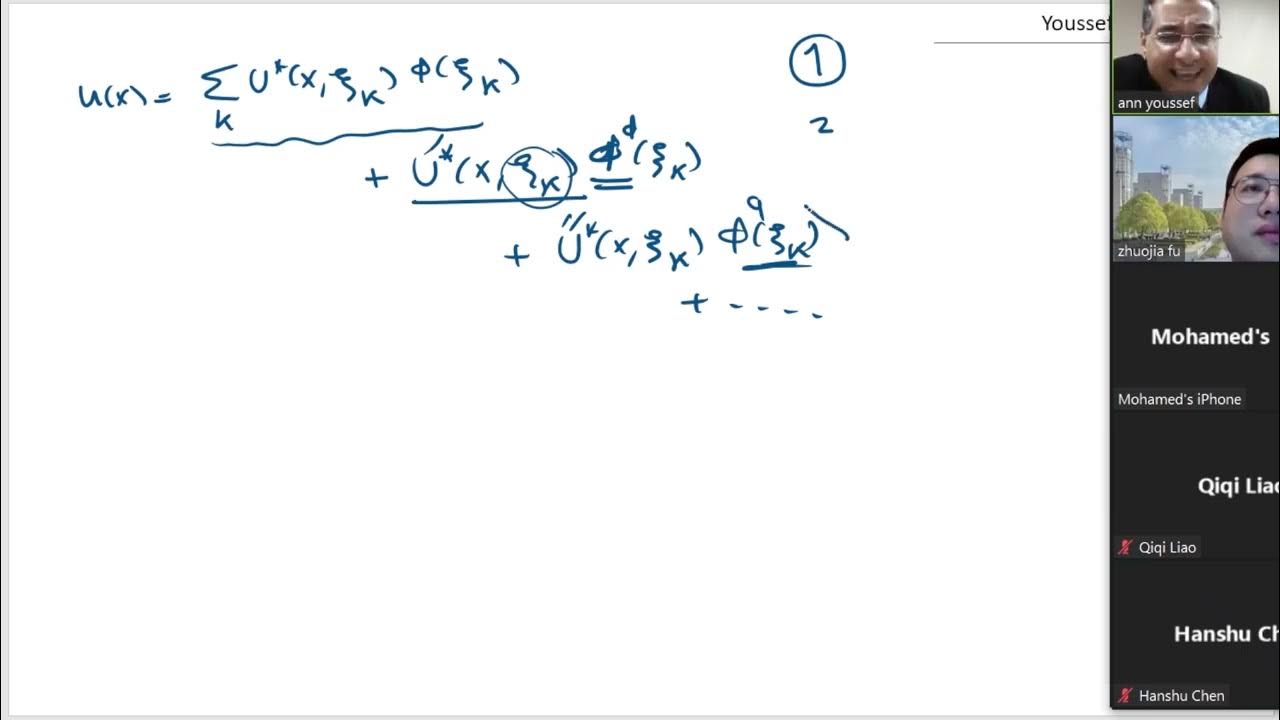 Youssef
①
u(x) = Σ U*(x, ξ_K) ϕ(ξ_K)
K
2
+ U'*(x, ξ_K) ϕ^d(ξ_K)
+ U''*(x, ξ_K) ϕ^q(ξ_K)
+ - - - -
ann youssef
zhuojia fu
Mohamed's
Mohamed's iPhone
Qiqi Liao
Qiqi Liao
Hanshu Ch
Hanshu Chen